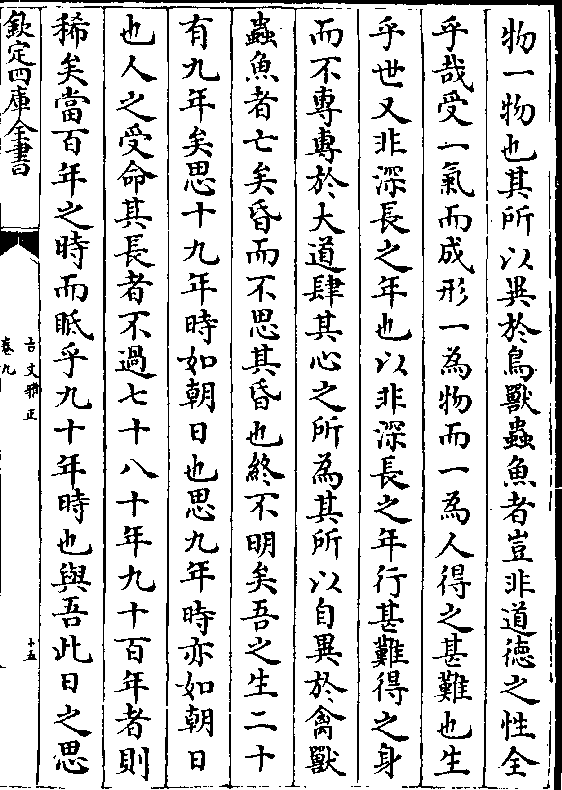 物一物也其所以異於鳥獸蟲魚者豈非道德之性全
乎哉受一氣而成形一為物而一為人得之甚難也生
乎世又非深長之年也以非深長之年行甚難得之身
而不專專於大道肆其心之所為其所以自異於禽獸
蟲魚者亡矣昏而不思其昏也終不明矣吾之生二十
有九年矣思十九年時如朝日也思九年時亦如朝日
也人之受命其長者不過七十八十年九十百年者則
稀矣當百年之時而眡乎九十年時也與吾此日之思
欽定四庫全書
古文雅正
卷九
十五